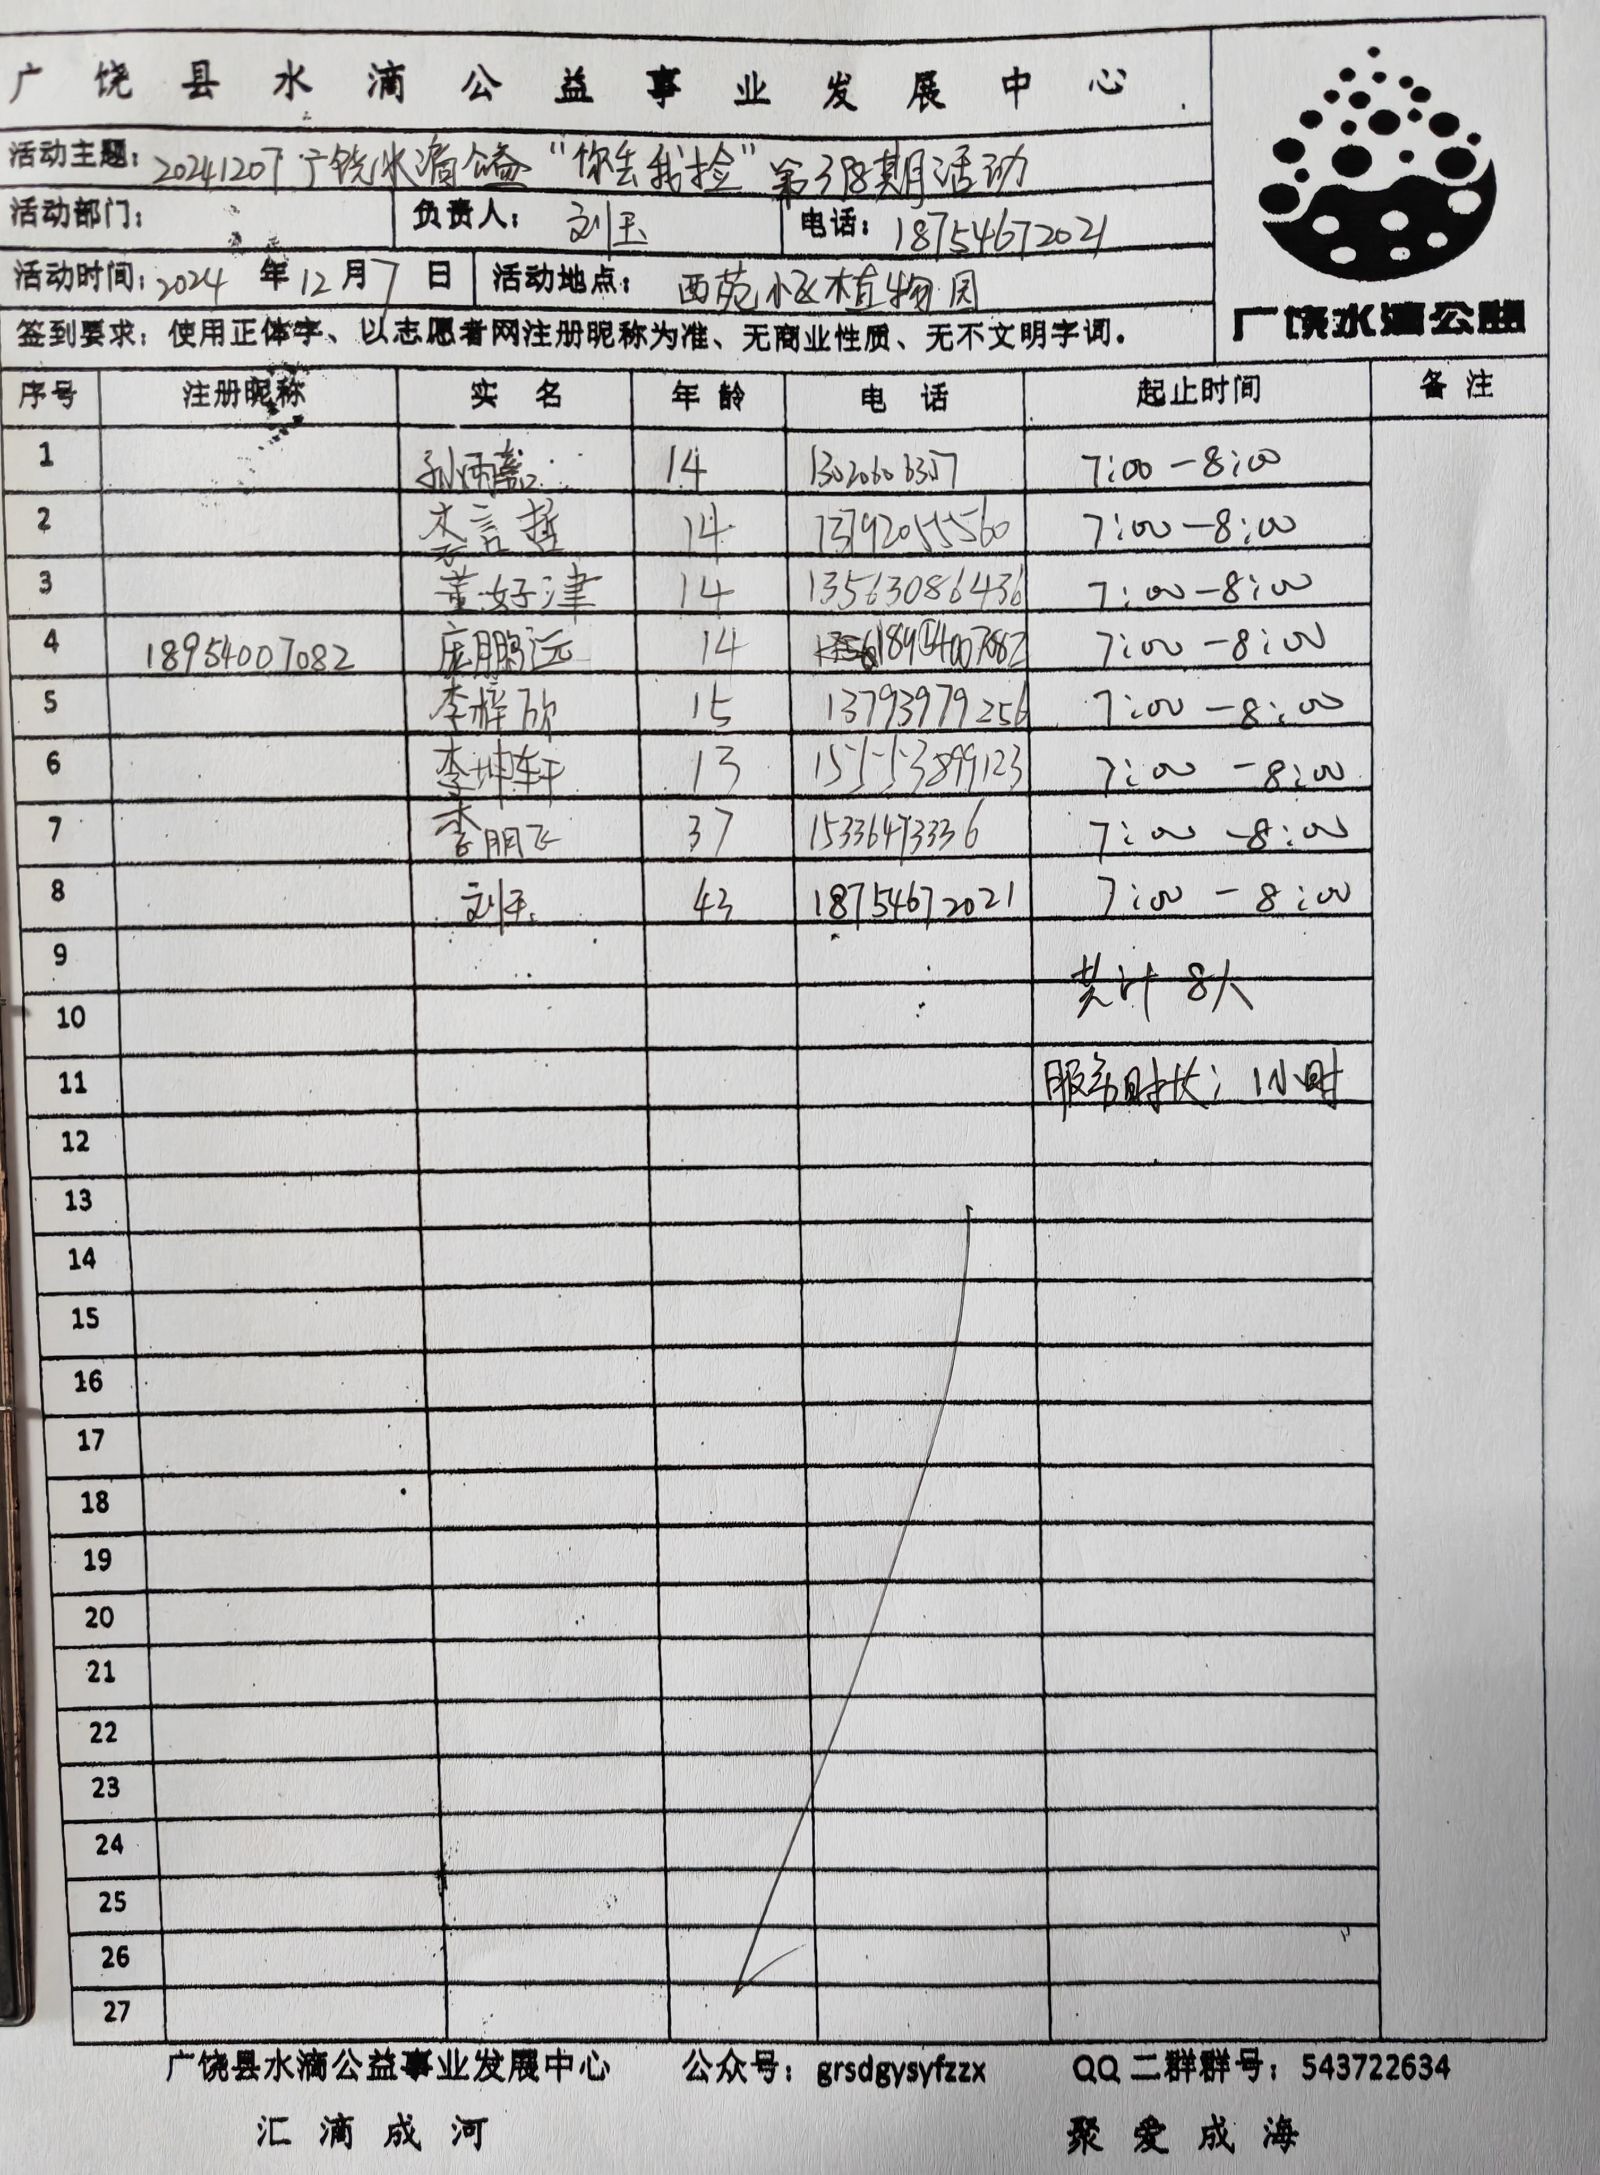 广饶县水滴公益事业发展中心
活动主题：20241207广饶水滴公益“你丢我捡”第318期活动
活动部门： 负责人：刘玉 电话：18754672021
活动时间：2024年12月7日 活动地点：西苑小区植物园
广饶水滴公益
签到要求：使用正体字、以志愿者网注册昵称为准、无商业性质、无不文明字词。
序号 注册昵称 实名 年龄 电话 起止时间 备注
1 14 13020606307 7:00-8:00
2 李言哲 14 13792055560 7:00-8:00
3 董好津 14 13563086436 7:00-8:00
4 18954007082 庞鹏远 14 18954007082 7:00-8:00
5 李梓欣 15 13793979256 7:00-8:00
6 李坤轩 13 15553899123 7:00-8:00
7 李朋飞 37 15336473336 7:00-8:00
8 刘玉 43 18754672021 7:00-8:00
9
共计8人
10
11 服务时长：1小时
12
13
14
15
16
17
18
19
20
21
22
23
24
25
26
27
广饶县水滴公益事业发展中心 公众号：grsdgysyfzzx QQ二群群号：543722634
汇滴成河 聚爱成海